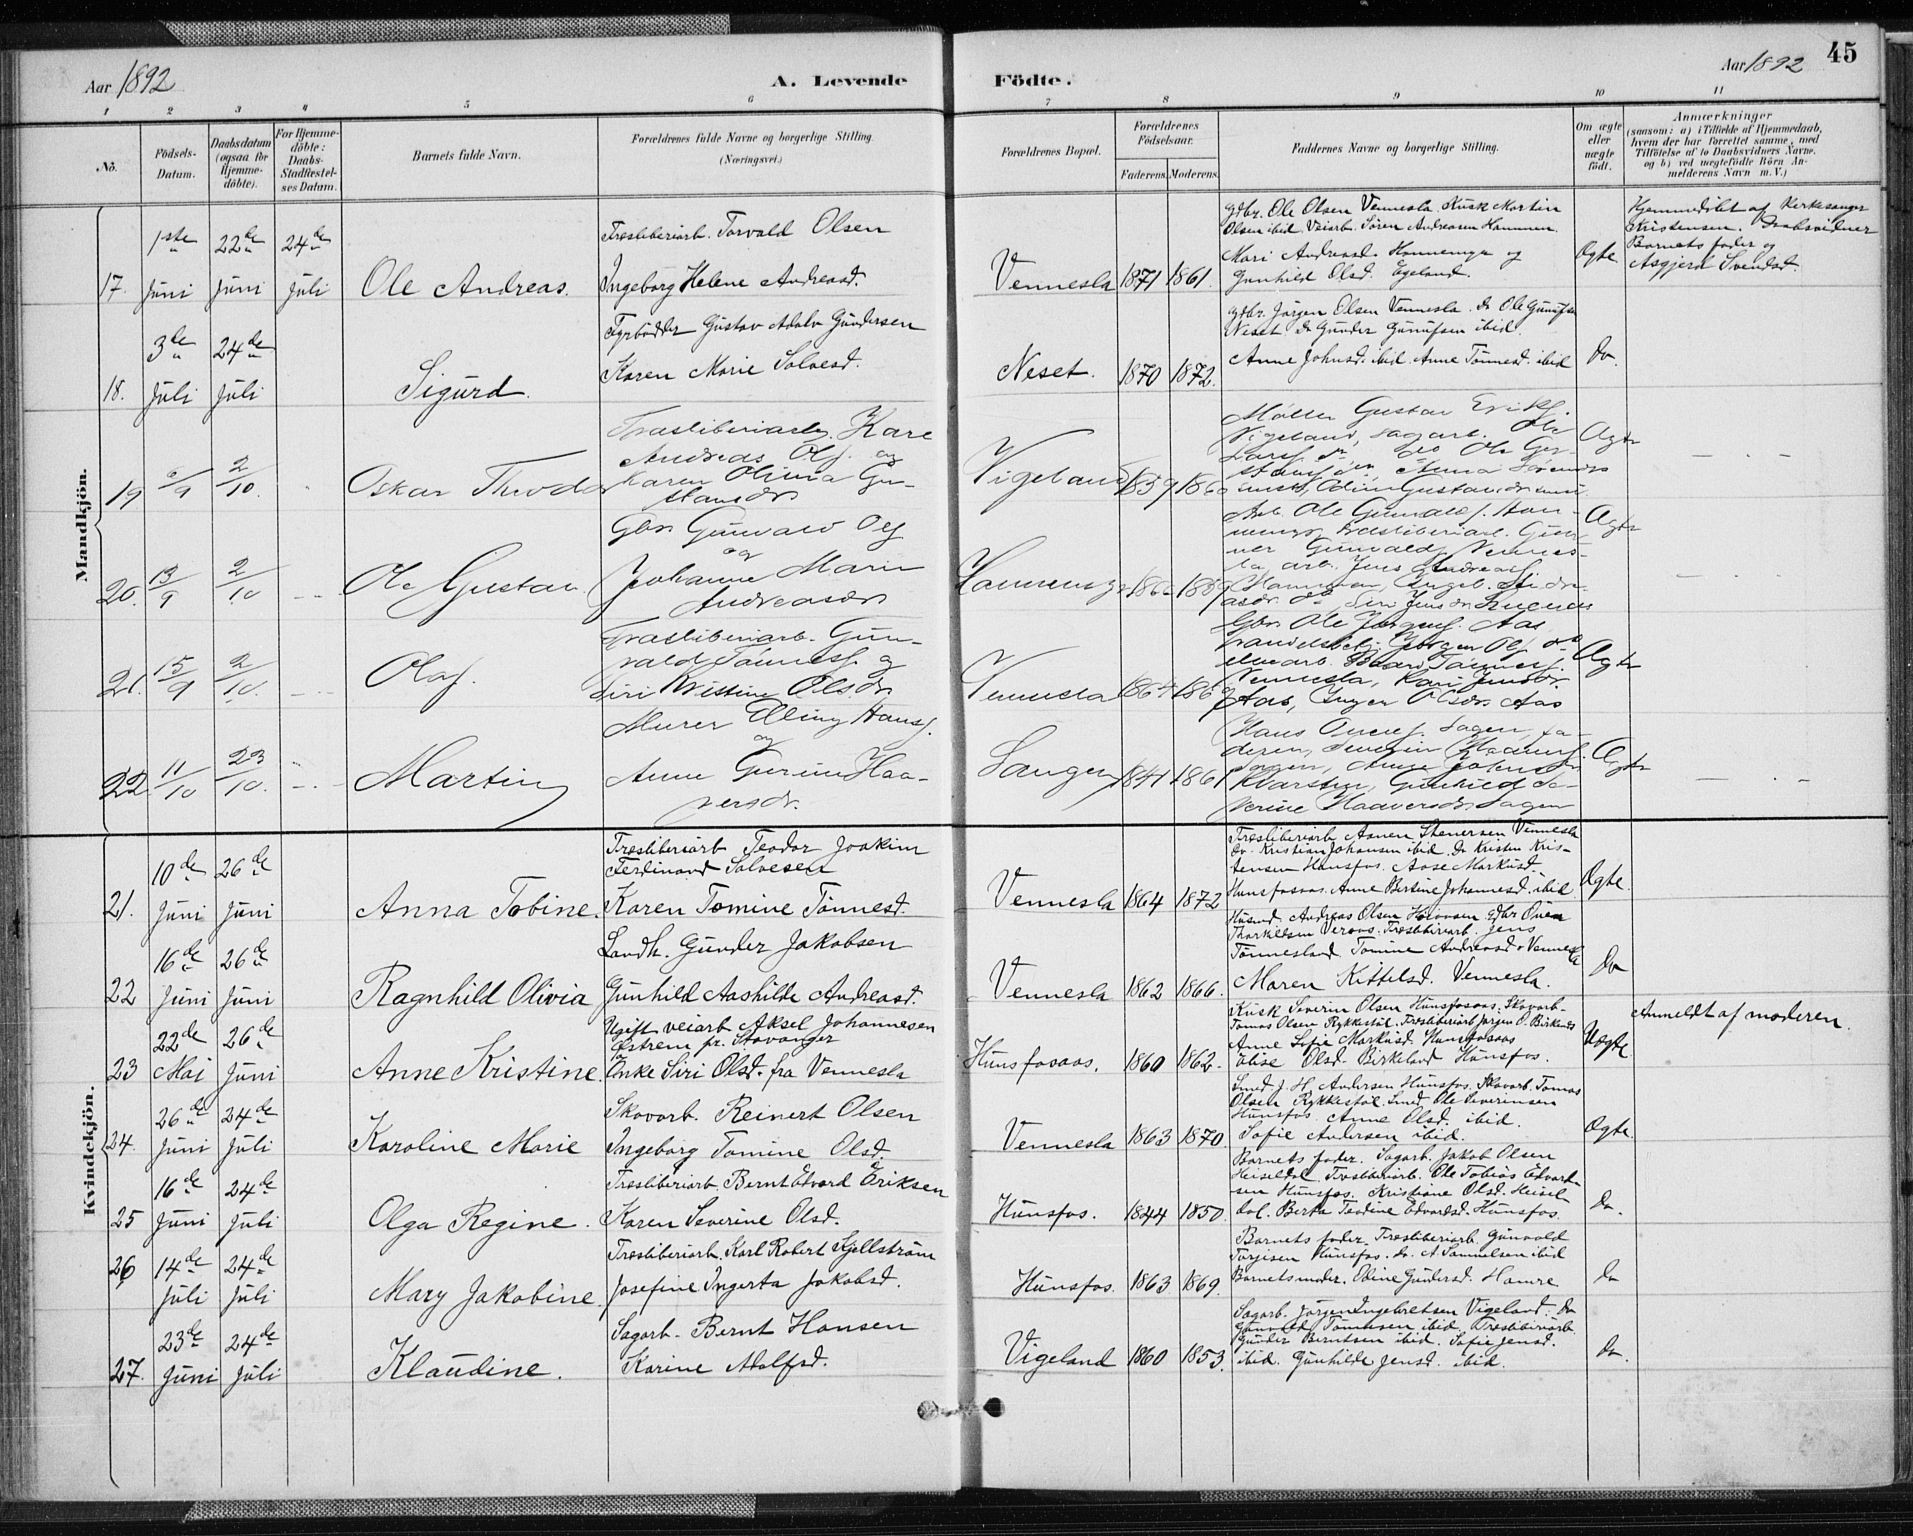 Aar 1892
A. Levende
Födte.
Aar 1892
45
1 2 3 4 5 6 7 8 9 10 11
Nö.
Födsels-
Datum.
Daabsdatum
(ogsaa för
Hjemme-
döbte).
For Hjemme-
döbte:
Daabs-
Stadfæstel-
ses Datum.
Barnets fulde Navn.
Forældrenes fulde Navne og borgerlige Stilling.
(Næringsvei.)
Forældrenes Bopæl.
Forældrenes
Födselsaar.
Faderens. Moderens.
Faddernes Navne og borgerlige Stilling.
Om ægte
eller
uægte
födt.
Anmærkninger
(saasom: a) i Tilfælde af Hjemmedaab,
hvem der har forrettet samme, med
Tilföielse af to Daabsvidners Navne.
og b) ved uægtefödte Börn An-
melderens Navn m. V.)
Mandkjön.
17.
1ste
Juni
22de
Juni
24de
Juli
Ole Andreas.
Træsliberiarb. Torvald Olsen
Ingeborg Helene Andreasd.
Vennesla
1871
1861.
Gdbr. Ole Olsen Vennesla. Kusk Martin
Olsen ibid. Veiarb. Sören Andreasen Hammen.
Mari Andreasd. Honnemyr og
Gunhild Olsd. Egeland.
Ægte
Hjemmedöbt af Kirkesanger
Kristensen. Daabsvidner
Barnets fader og
Asgjerd Svendsd.
18.
3de
Juli
24de
Juli
Sigurd.
Fyrbödder Gustav Adolv Gundersen
Karen Marie Solvesd.
Neset.
1870
1872.
Gdbr. Jörgen Olsen Vennesla. Do Ole Gunufsen
Neset do Gunder Gunufsen ibid.
Anne Johnsd. ibid. Anne Tönnesd. ibid
Do.
19
6/9
2/10.
Oskar Theodor
Træsliberiarb. Karl
Andreas Ols. og
Karen Olivia Gu-
stavsdr
Vigeland
1859
1860
Möller Gustav Eriks.
Vigeland, sagarb. Ole
Ægte
20.
13/9
2/10
Ole Gustav.
Gbr. Gunvald Ols
og
Johanne Marie
Andreasdr
Arb. Ole Gunvalds. Hon-
nemyr, træsliberiarb. Gun-
Ægte
21.
15/9
2/10.
Olaf.
Træsliberiarb. Gun-
vald Tönness. og
Siri Kristine Olsdr.
Vennesla
1864
Gbr. Ole Jörgens. Aas
Vennesla, Kari Jensdr.
Aas, Inger Olsdr. Aas
Ægte
22.
11/10
23/10.
Martin
Murer Elling Hans.
og
Anne Gurine Haa-
versdr.
1841
1861
Hans Owens. Sagen, fa-
Kvarstein, Gunhild Se-
verine Haaversdr. Sagen
Ægte
Kvindekjön.
21.
10de
Juni
26de
Juni
Anna Tobine.
Træsliberiarb Teodor Joakim
Ferdinand Solvesen
Karen Tomine Tönnesd.
Vennesla
1864
1872
Træsliberiarb Asnen Stenersen Vennesla
Do. Kristian Johansen ibid. Do Kristen Kris-
tensen Hunsfos. Aase Markusd.
Hunsfosaas. Anne Bertine Johannesd. ibid
Ægte.
22
16de
Juni
26de
Juni
Ragnhild Olivia
Landh. Gunder Jakobsen
Gunhild Aashilde Andreasd.
Vennesla
1862
1866.
Husmd. Andreas Olsen
Torkildsen Veraas. Træsliberiarb. Jens
Tönnesland. Tomine Andreasd. Vennesla
Maren Kittelsd. Vennesla.
Do
23
22de
Mai
26de
Juni
Anne Kristine.
Ugift veiarb Aksel Johannesen
Østrem pr. Stavanger
Enke Siri Olsd. fra Vennesla
Hunsfosaas.
1860
1862.
Kusk Severin Olsen Hunsfosaas. Skovarb.
Tomas Olsen Rykkestöl. Træsliberiarb Jörgen O. Birkeland
Anne Sofie Markusd. Hunsfosaas
Elise Olsd. Birkeland Hunsfos.
Uægte.
Anmeldt af moderen.
24.
26de
Juni
24de
Juli
Karoline Marie
Skovarb. Reinert Olsen
Ingeborg Tomine Olsd.
Vennesla
1863
1870
Smed. J. H. Andersen Hunsfos. Skovarb. Tomas
Olsen Rykkestöl. Smed. Ole Severinsen
Hunsfos. Anne Olsd. ibid.
Sofie Andersen ibid.
Ægte.
25
16de
Juni
24de
Juli
Olga Regine.
Træsliberiarb. Bernt Edvard Eriksen
Karen Severine Olsd.
Hunsfos.
1844
1850.
Barnets fader. Sagarb. Jakob Olsen
Heiseldal. Træsliberiarb. Ole Tobias Edvard-
sen Hunsfos. Kristiane Olsd. Heisel-
dal. Berta Teodine Edvardsd. Hunsfos.
Do.
26
14de
Juli
24de
Juli
Mary Jakobine.
Træsliberiarb. Karl Robert Kjellström
Josefine Ingerta Jakobsd.
Hunsfos.
1863
1869.
Barnets fader. Træsliberiarb. Gunvald
Torgisen Hunsfos. do. A. Samuelsen ibid
Barnets moder. Oline Gundersd. Hamre
do
27.
23de
Juni
24de
Juli
Klaudine.
Sagarb. Bernt Hansen
Karine Adolfsd.
Vigeland
1860
1853.
Sagarb. Jörgen Ingebretsen Vigeland. Do
Gunvald Tönnesen ibid. Træsliberiarb.
Gunder Berntsen ibid. Sofie Jensd.
ibid. Gunhilde Jensd. ibid.
do.